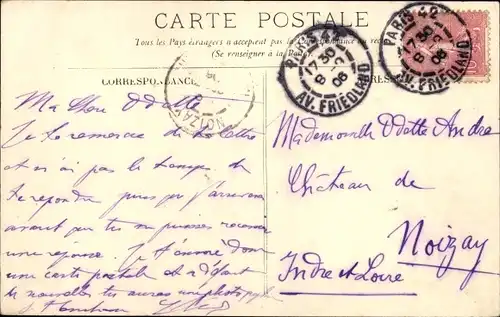 CARTE POSTALE
Tous les Pays étrangers n'acceptent pas la Correspondance au recto
(Se renseigner à la Poste)
CORRESPONDANCE
PARIS 42
17 30
8
06
AV. FRIEDLAND
PARIS 42
17 30
8
06
AV. FRIEDLAND
NOIZAY
Ma chère Odette
Je te remercie de ta lettre
et n'ai pas le temps de
te répondre puis que j'arriverai
avant que tu ne puisses recevoir
une réponse. Je t'envoie donc
une carte postale et à défaut
de nouvelles tu auras une
Mademoiselle Odette André
Château de
Noizay
Indre et Loire